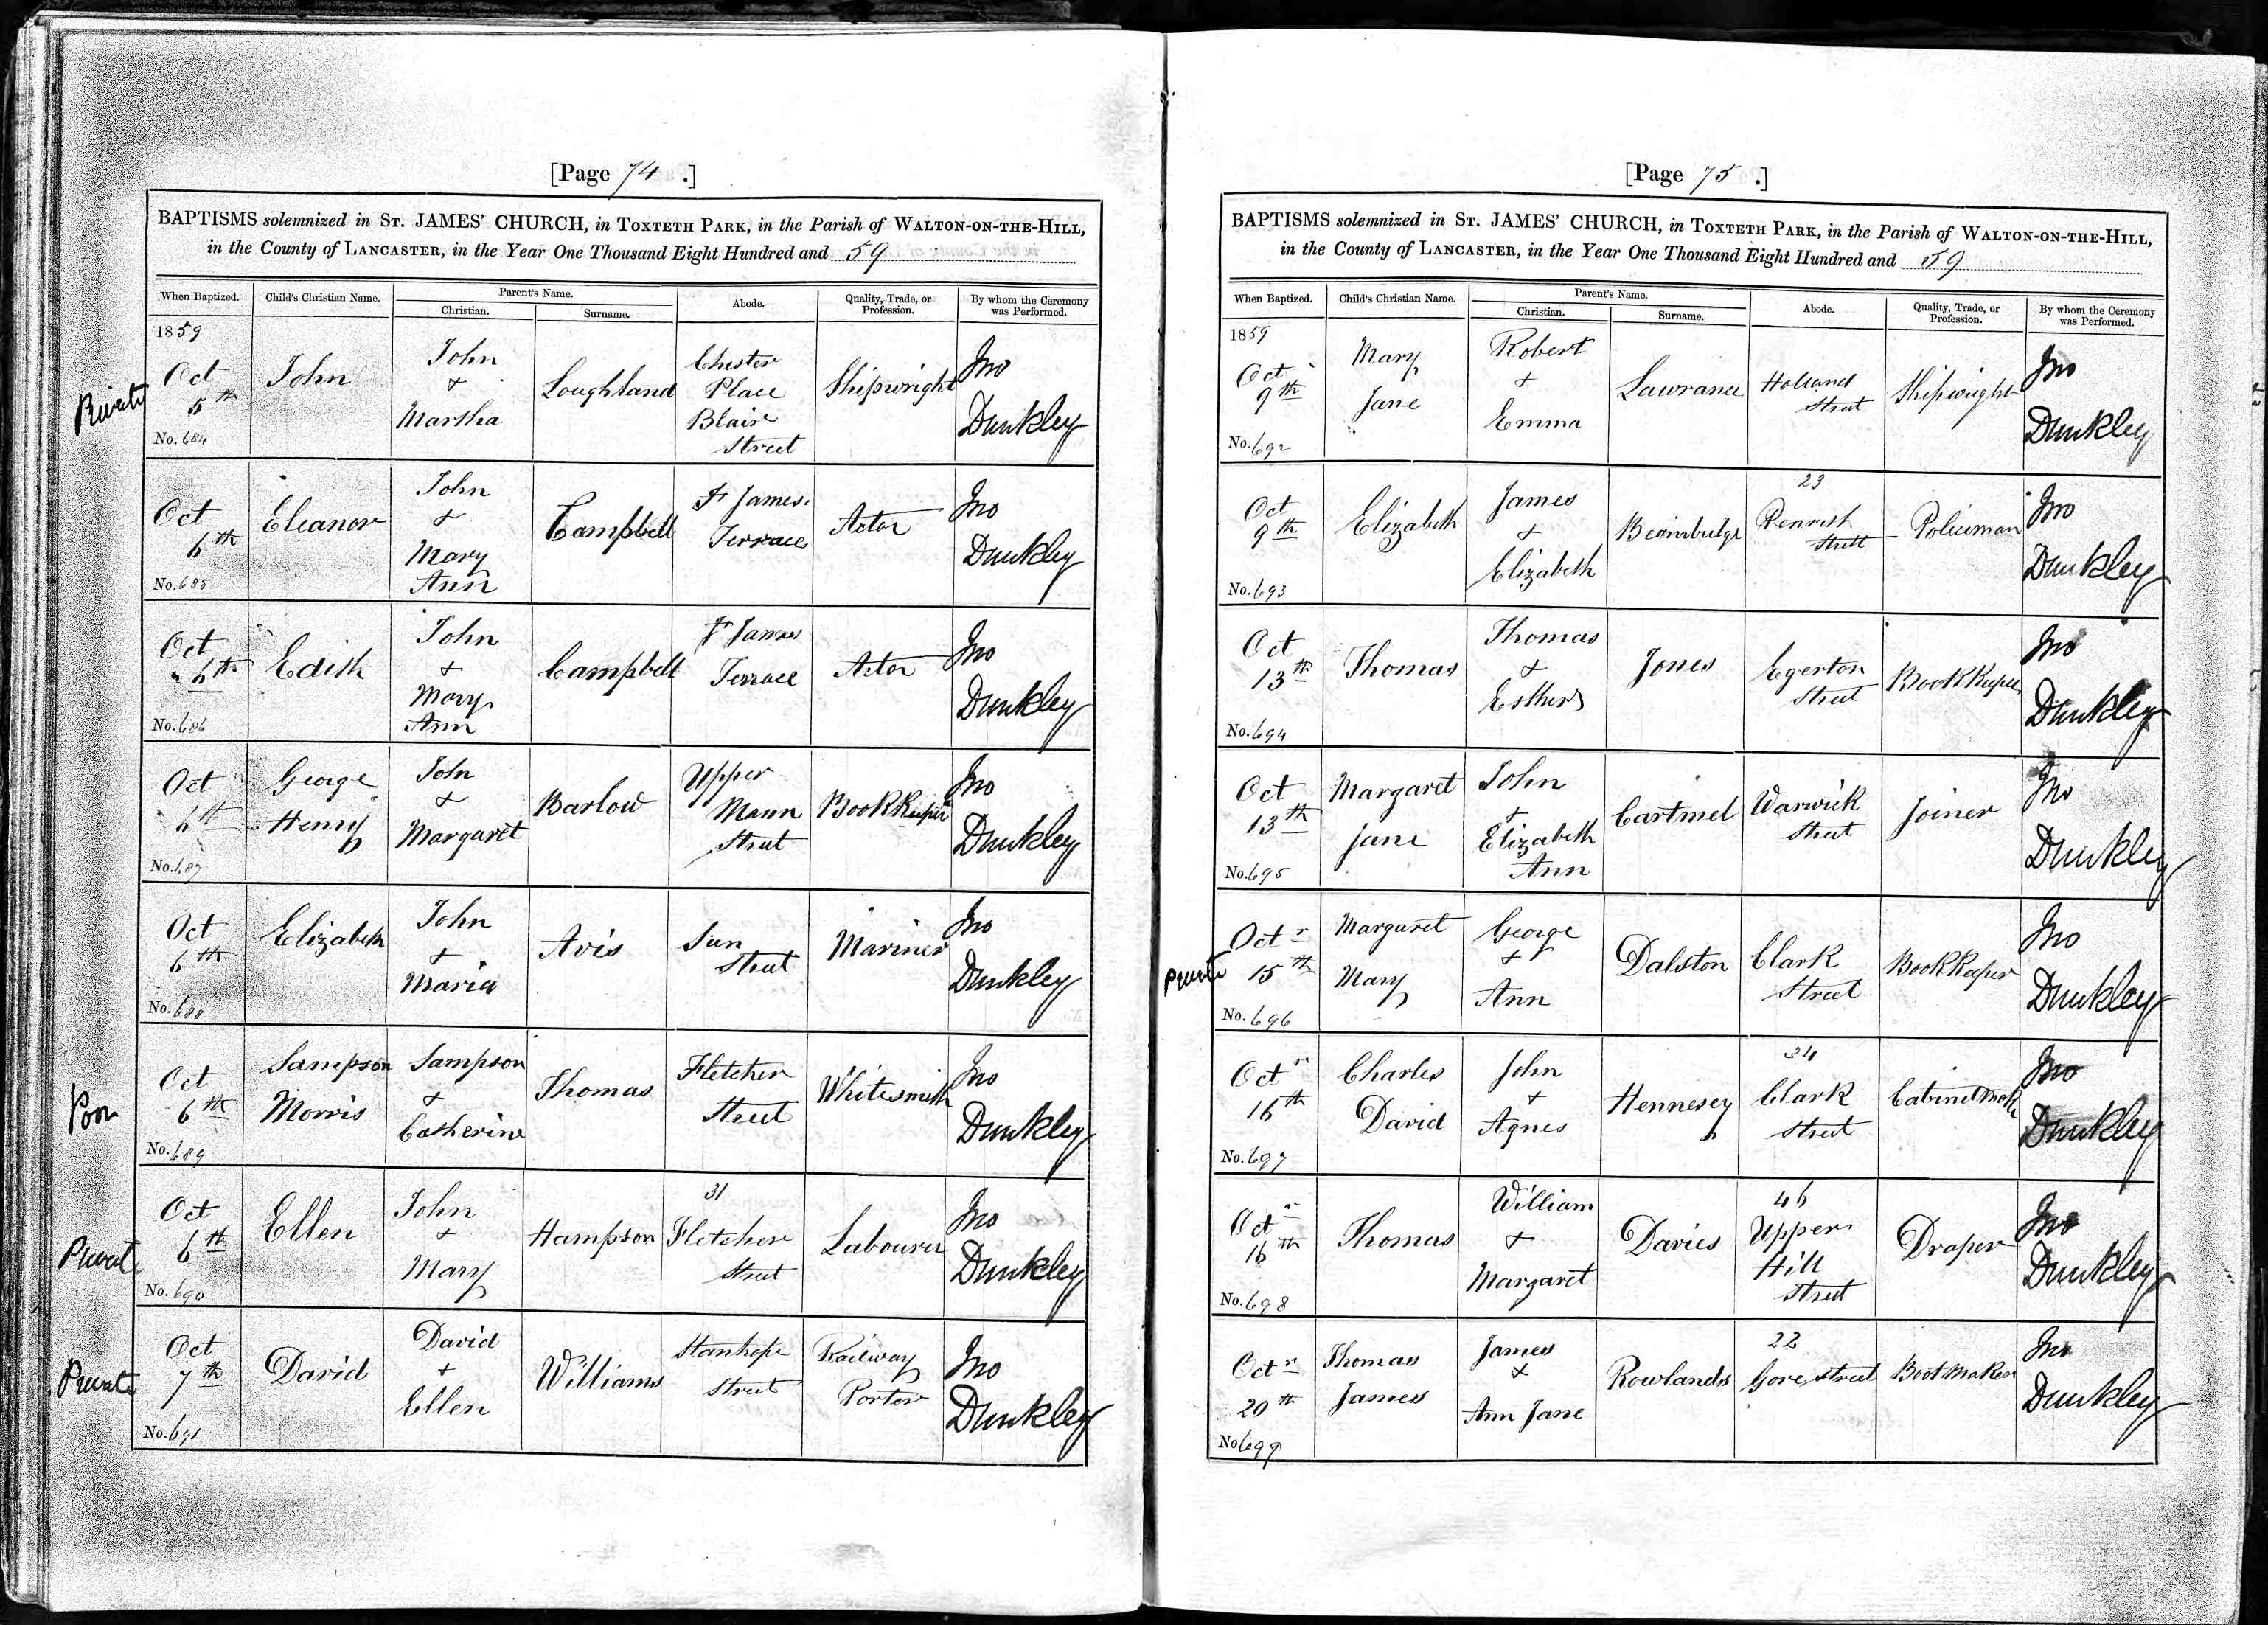 [Page 74 .]
BAPTISMS solemnized in ST. JAMES' CHURCH, in TOXTETH PARK, in the Parish of WALTON-ON-THE-HILL,
in the County of LANCASTER, in the Year One Thousand Eight Hundred and 59
When Baptized. Child's Christian Name. Parent's Name. Christian. Surname. Abode. Quality, Trade, or Profession. By whom the Ceremony was Performed.
1859
Private Oct 5th No. 684 John John & Martha Loughland Chester Place Blair Street Shipwright Jno Dunkley
Oct 6th No. 685 Eleanor John & Mary Ann Campbell St James Terrace Actor Jno Dunkley
Oct 6th No. 686 Edith John & Mary Ann Campbell St James Terrace Actor Jno Dunkley
Oct 6th No. 687 George Henry John & Margaret Barlow Upper Mann Street BookKeeper Jno Dunkley
Oct 6th No. 688 Elizabeth John & Maria Avis Sun Street Mariner Jno Dunkley
Poor Oct 6th No. 689 Sampson Morris Sampson & Catherine Thomas Fletcher Street Whitesmith Jno Dunkley
Private Oct 6th No. 690 Ellen John & Mary Hampson 31 Fletcher Street Labourer Jno Dunkley
Private Oct 7th No. 691 David David & Ellen Williams Stanhope Street Railway Porter Jno Dunkley
[Page 75 .]
BAPTISMS solemnized in ST. JAMES' CHURCH, in TOXTETH PARK, in the Parish of WALTON-ON-THE-HILL,
in the County of LANCASTER, in the Year One Thousand Eight Hundred and 59
When Baptized. Child's Christian Name. Parent's Name. Christian. Surname. Abode. Quality, Trade, or Profession. By whom the Ceremony was Performed.
1859
Oct 9th No. 692 Mary Jane Robert & Emma Lawrance Holland Street Shipwright Jno Dunkley
Oct 9th No. 693 Elizabeth James & Elizabeth 23 Street Policeman Jno Dunkley
Oct 13th No. 694 Thomas Thomas & Esther Jones Egerton Street BookKeeper Jno Dunkley
Oct 13th No. 695 Margaret Jane John & Elizabeth Ann Cartmel Warwick Street Joiner Jno Dunkley
Private Octr 15th No. 696 Margaret Mary George & Ann Dalston Clark Street BookKeeper Jno Dunkley
Octr 16th No. 697 Charles David John & Agnes Hennesey 34 Clark Street Cabinet Jno Dunkley
Octr 16th No. 698 Thomas William & Margaret Davies 46 Upper Hill Street Draper Jno Dunkley
Octr 20th No 699 Thomas James James & Ann Jane Rowlands 22 Gore Street Boot Maker Jno Dunkley